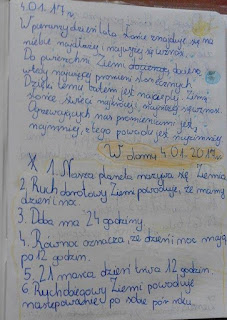 4.01.17 r.
W pierwszy dzień lata słońce znajduje się na
niebie najdłużej i najwyżej się wznosi.
Do powierzchni Ziemi dociera dzisiaj
wtedy najwięcej promieni słonecznych.
Dzięki temu latem jest najcieplej. Zimą
słońce świeci najkrócej i najniżej się wznosi.
Ogrzewających nas promieni jest
najmniej, z tego powodu jest najzimniej
W domu 4.01.2017 r.
X 1. Nasza planeta nazywa się Ziemia
2. Ruch obrotowy Ziemi powoduje, że mamy
dzień i noc.
3. Doba ma 24 godziny.
4. Równoc oznacza, że dzień i noc mają
po 12 godzin.
5. 21 marca dzień trwa 12 godzin.
6. Ruch obiegowy Ziemi powoduje
następowanie po sobie pór roku.